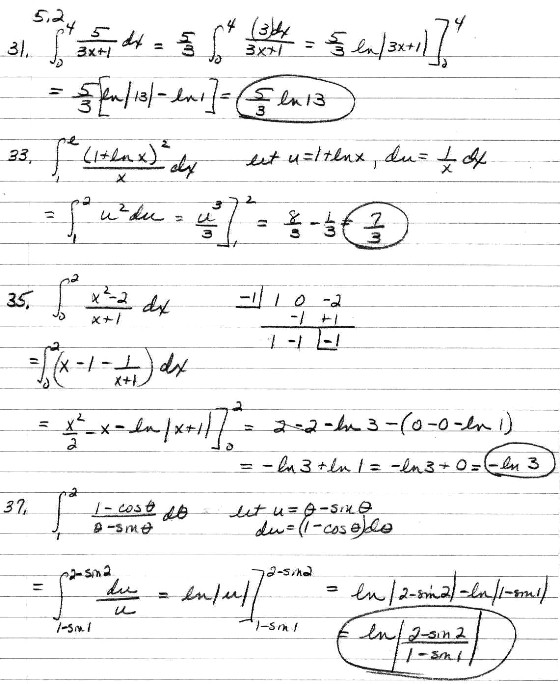 5.2
31. ∫₀⁴ 5/(3x+1) dx = 5/3 ∫₀⁴ (3)dx/(3x+1) = 5/3 ln|3x+1|]₀⁴
= 5/3 [ln|13| - ln1] = 5/3 ln13
33. ∫₁ᵉ (1+lnx)²/x dx let u=1+lnx, du= 1/x dx
= ∫₁² u² du = u³/3]₁² = 8/3 - 1/3 = 7/3
35. ∫₀² (x²-2)/(x+1) dx -1| 1 0 -2
-1 +1
1 -1 |-1
= ∫₀² (x - 1 - 1/(x+1)) dx
= x²/2 - x - ln|x+1|]₀² = 2-2-ln3-(0-0-ln1)
= -ln3+ln1 = -ln3+0 = -ln3
37. ∫₁² (1-cosθ)/(θ-sinθ) dθ let u=θ-sinθ
du=(1-cosθ)dθ
= ∫_{1-sin1}^{2-sin2} du/u = ln|u|]_{1-sin1}^{2-sin2} = ln|2-sin2|-ln|1-sin1|
= ln|(2-sin2)/(1-sin1)|